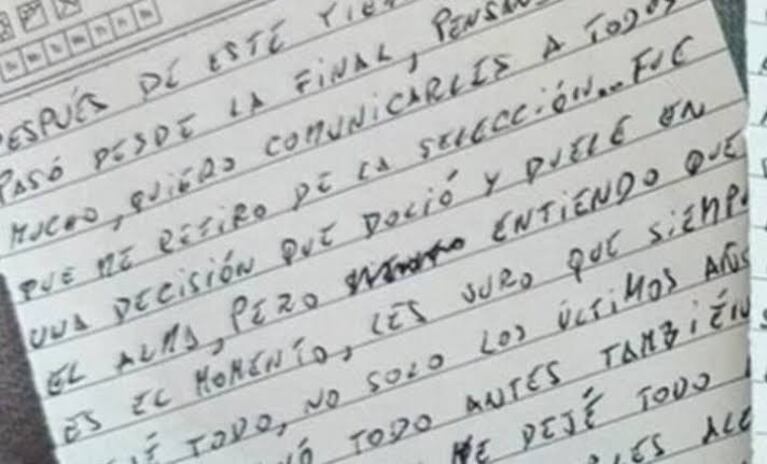 DESPUÉS DE ESTE
PASÓ DESDE LA FINAL,
MUCHO, QUIERO COMUNICARLES A TODOS
QUE ME RETIRO DE LA SELECCIÓN... FUE
UNA DECISIÓN QUE DOLIÓ Y DUELE EN
EL ALMA, PERO ENTIENDO QUE
ES EL MOMENTO, LES JURO QUE SIEMPRE
TODO, NO SOLO LOS ÚLTIMOS AÑOS
TODO ANTES TAMBIÉN
ME DEJÉ TODO